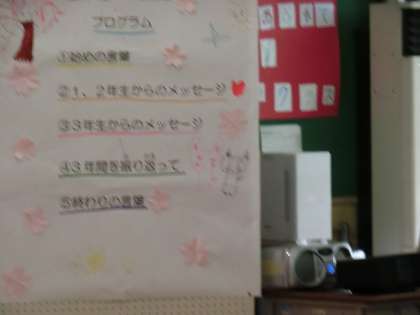 プログラム
①始めの言葉
②1、2年生からのメッセージ
③3年生からのメッセージ
④3年間を振り返って
⑤終わりの言葉